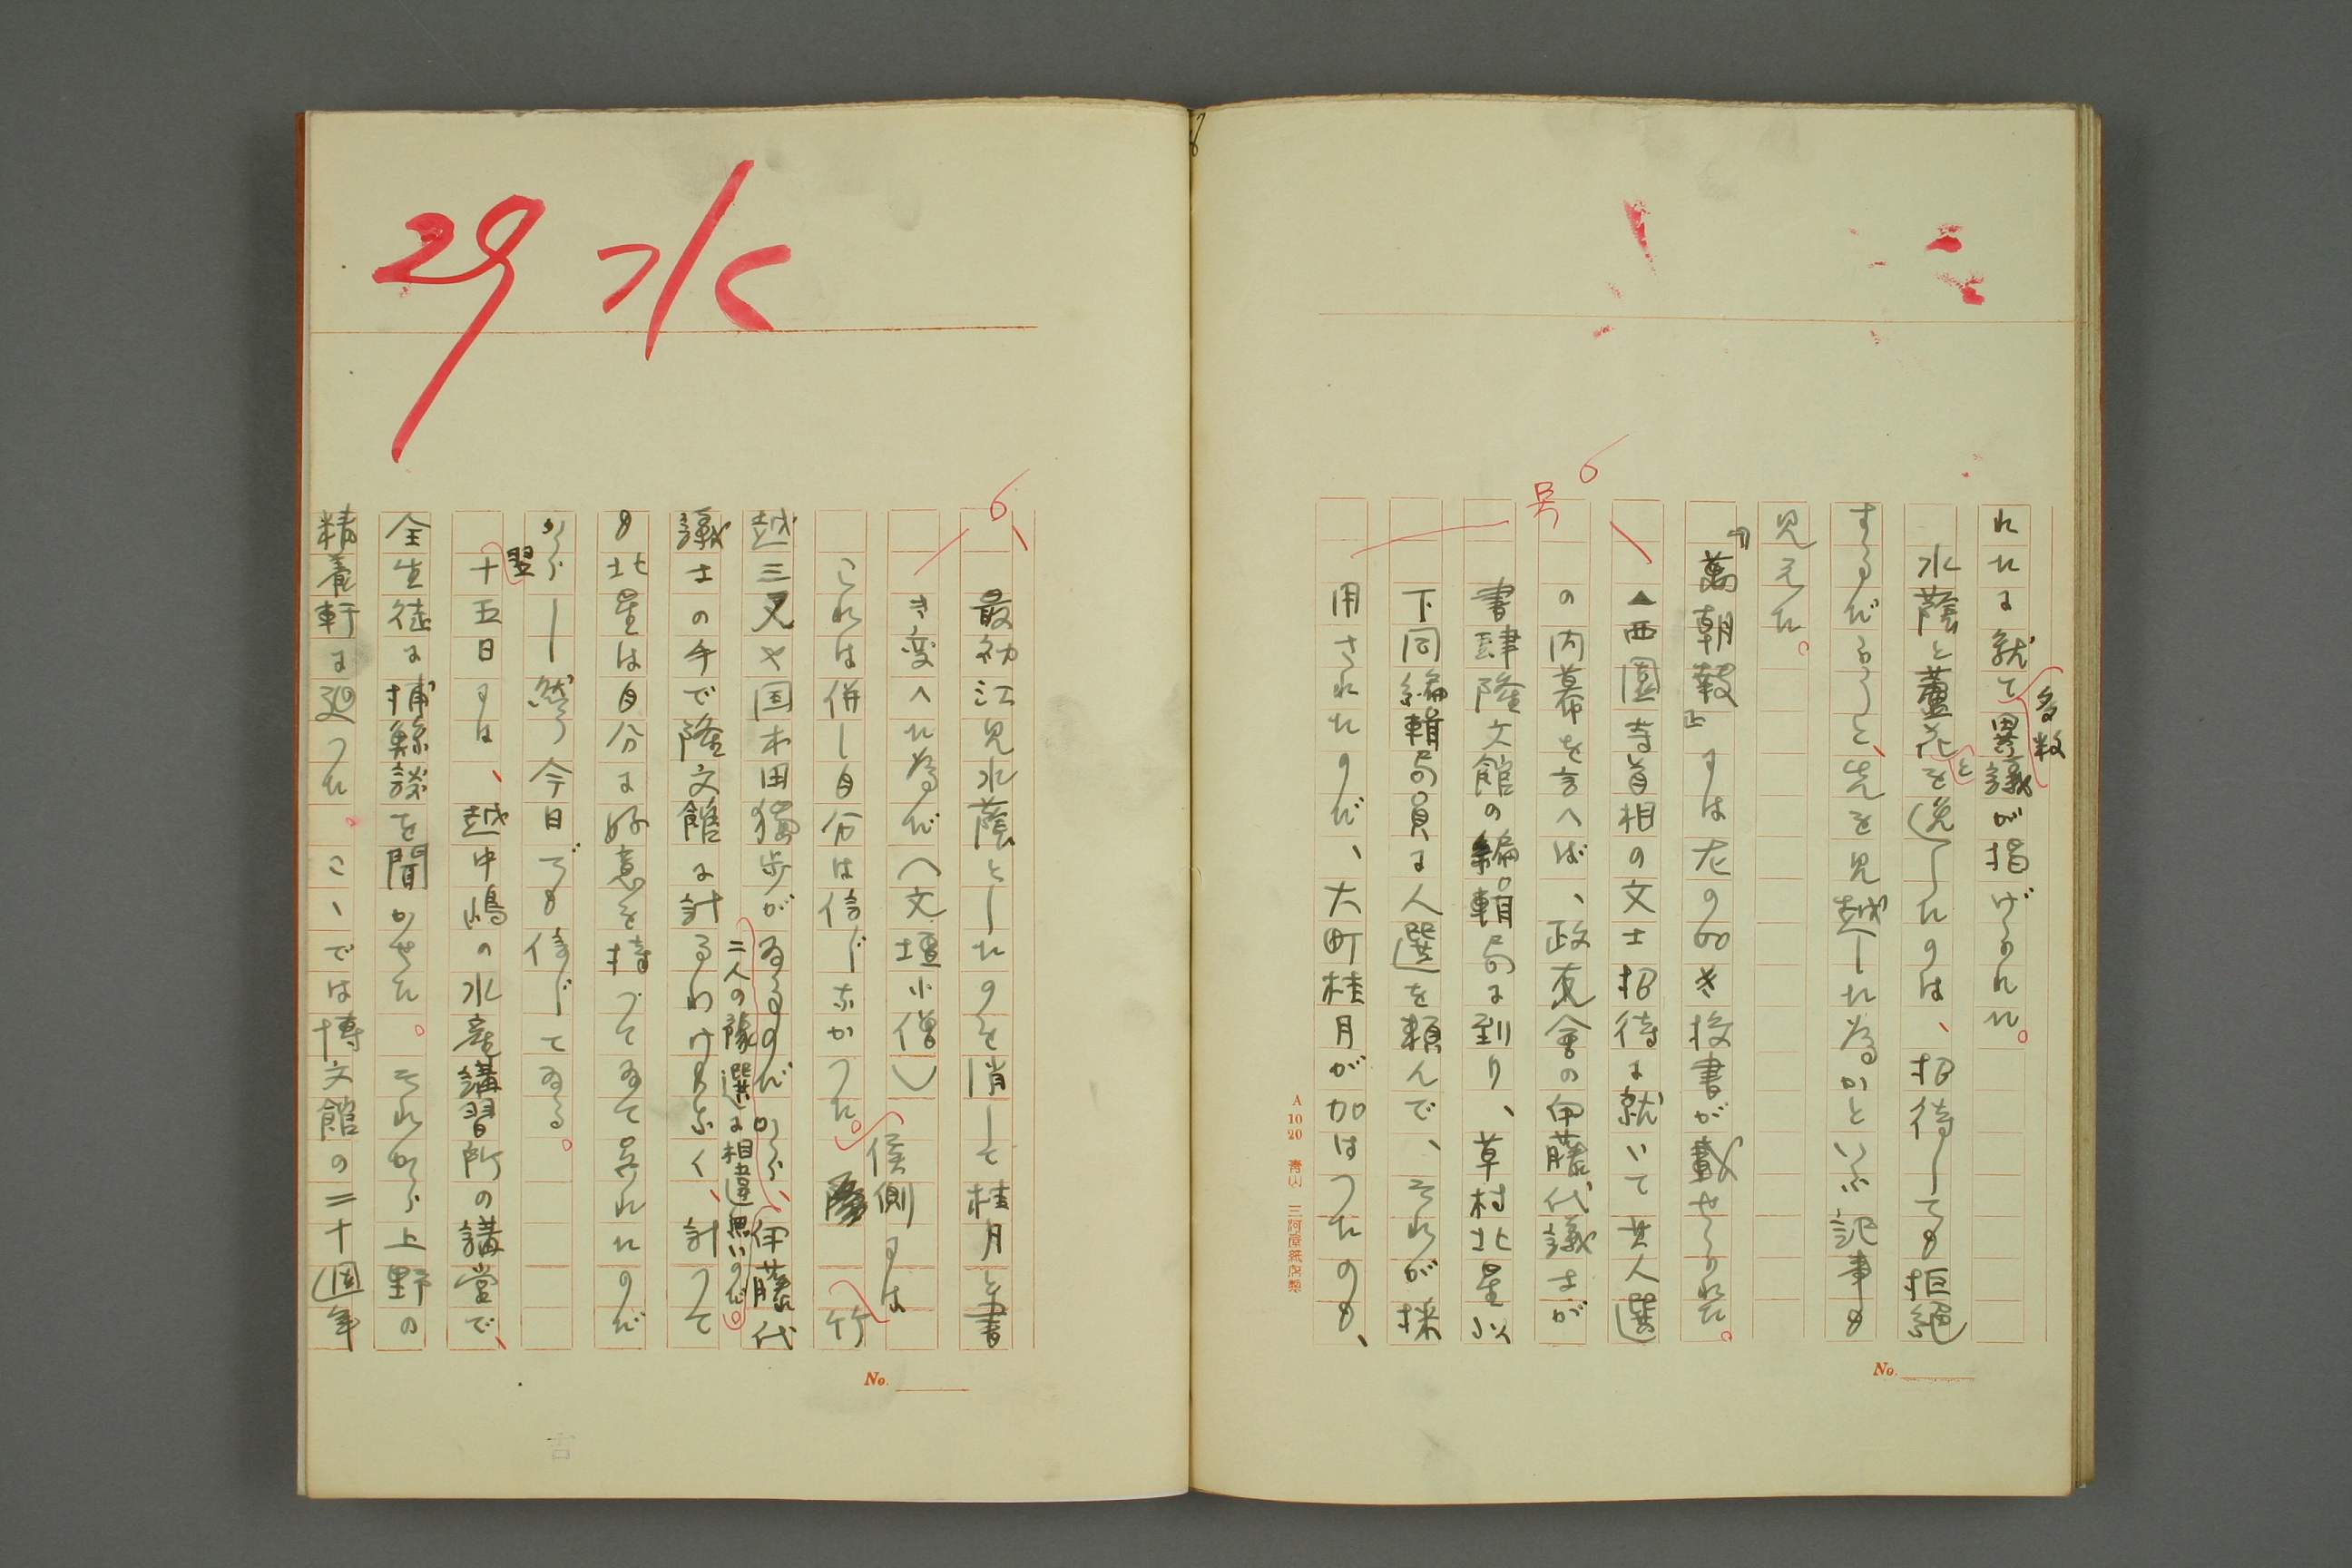 れたに就て多数異議が揭げられた。
水蔭と蘆花とを逸したのは、招待しても拒絕
するだろうと、先を見越した為かといふ記事も
見えた。
『萬朝報』には左の如き投書が載せられた。
▲西園寺首相の文士招待に就いて其人選
の内幕を言へば、政友會の伊藤代議士が
書肆隆文館の編輯局に到り、草村北星以
下同編輯局員に人選を頼んで、それが採
用されたのだ、大町桂月が加はつたのも、
6
号
A 10 20 青山 三河屋紙店製
No.
最初江見水蔭としたのを消して桂月と書
き変へた為だ(文壇小僧)
これは併し自分は信じなかつた。侯側には竹
越三叉や国木田獨歩がゐるのだから、伊藤代
議士の手で隆文館に計るわけもなく、計つて
二人の豫選に相違無いのだ。
も北星は自分に好意を持つてゐて呉れたのだ
から――然う今日でも信じてゐる。
翌十五日には、越中嶋の水産講習所の講堂で、
全生徒に捕鯨談を聞かせた。それから上野の
精養軒に廻つた。こゝでは博文館の二十週年
6
29
No.